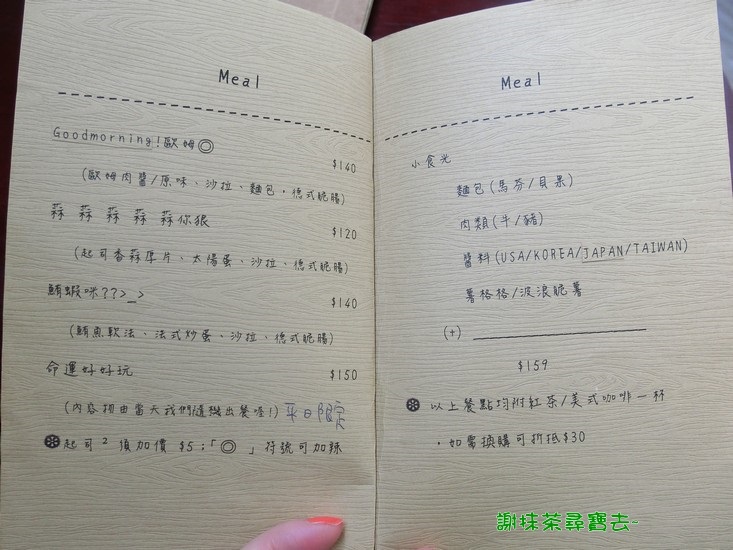 Meal
Goodmorning!歐姆◎
$140
(歐姆肉醬/原味、沙拉、麵包、德式脆腸)
蒜 蒜 蒜 蒜 蒜你狠
$120
(起司香蒜厚片、太陽蛋、沙拉、德式脆腸)
鮪蝦咪??>_>
$140
(鮪魚軟法、法式炒蛋、沙拉、德式脆腸)
命運好好玩
$150
(內容物由當天我們隨機出餐喔!) 平日限定
起司² 須加價 $5;「◎」符號可加辣
Meal
小食光
麵包(馬芬/貝果)
肉類(牛/豬)
醬料(USA/KOREA/JAPAN/TAIWAN)
薯格格/波浪脆薯
(+)
$159
以上餐點均附紅茶/美式咖啡一杯
·如需換購可折抵$30
謝抹茶尋寶去~